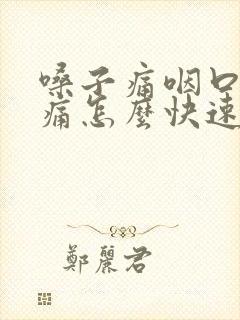 嗓子痛咽口
痛怎麼快速
鄭麗君